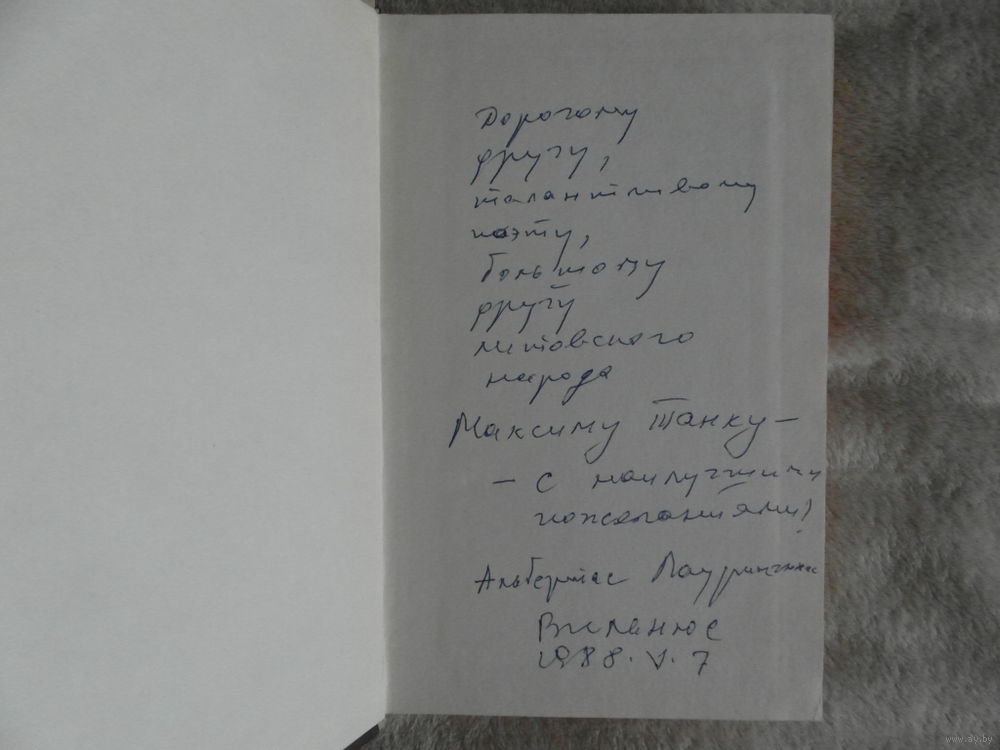 Дорогому
другу,
талантливому
поэту,
большому
другу
литовского
народа
Максиму Танку —
— с наилучшими
пожеланиями!
Альбертас Лауринчюкас
Вильнюс
1988. V. 7
www.ay.by